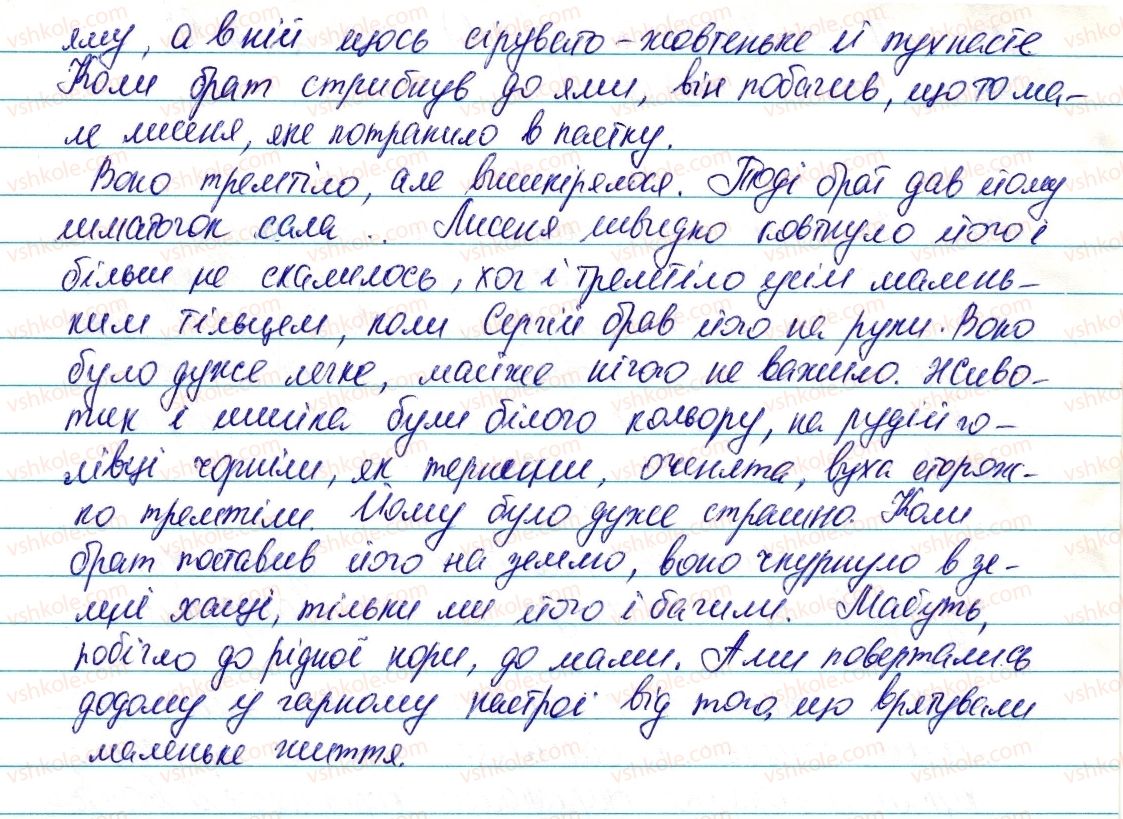 яму, а в ній щось сірувато-жовтеньке й пухнасте
Коли брат стрибнув до ями, він побачив, що то ма-
ле лисеня, яке потрапило в пастку.
Воно тремтіло, але вишкірялося. Тоді брат дав йому
шматочок сала.. Лисеня швидко ковтнуло його і
більш не скалилось, хоч і тремтіло усім малень-
ким тільцем, коли Сергій брав його на руки. Воно
було дуже легке, майже нічого не важило. Живо-
тик і шийка були білого кольору, на рудій го-
лівці чорніли, як терници, оченята, вуха сторож-
ко тремтіли. Йому було дуже страшно. Коли
брат поставив його на землю, воно чкурнуло в зе-
лені хащі, тільки ми його і бачили. Мабуть,
побігло до рідної нори, до мами. А ми повертались
додому у гарному настрої від того, що врятували
маленьке життя.
vshkole.com